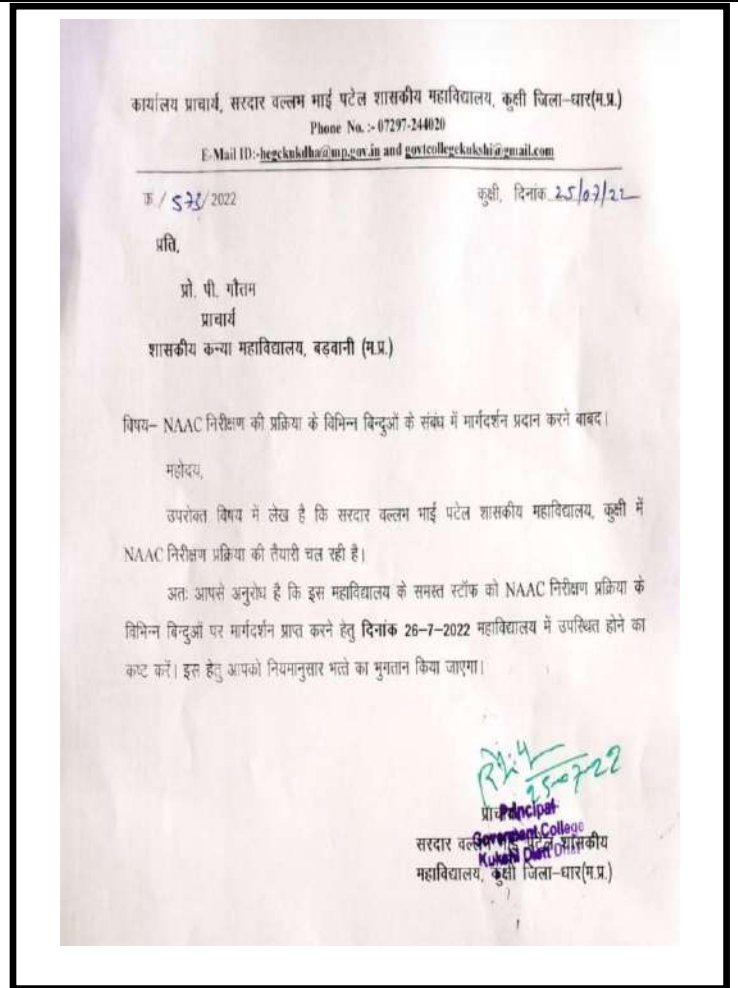 कार्यालय प्राचार्य, सरदार वल्लभ भाई पटेल शासकीय महाविद्यालय, कुक्षी जिला–धार(म.प्र.)
Phone No. :- 07297-244020
E-Mail ID:-hegckukdha@mp.gov.in and govtcollegekukshi@gmail.com
क्र / /2022
कुक्षी, दिनांक 25/07/22
प्रति,
प्रो. पी. गौतम
प्राचार्य
शासकीय कन्या महाविद्यालय, बड़वानी (म.प्र.)
विषय– NAAC निरीक्षण की प्रक्रिया के विभिन्न बिन्दुओं के संबंध में मार्गदर्शन प्रदान करने बाबद।
महोदय,
उपरोक्त विषय में लेख है कि सरदार वल्लभ भाई पटेल शासकीय महाविद्यालय, कुक्षी में
NAAC निरीक्षण प्रक्रिया की तैयारी चल रही है।
अतः आपसे अनुरोध है कि इस महाविद्यालय के समस्त स्टॉफ को NAAC निरीक्षण प्रक्रिया के
विभिन्न बिन्दुओं पर मार्गदर्शन प्राप्त करने हेतु दिनांक 26–7–2022 महाविद्यालय में उपस्थित होने का
कष्ट करें। इस हेतु आपको नियमानुसार भत्ते का भुगतान किया जाएगा।
25-07-22
Principal
Government College
Kukshi Distt Dhar
सरदार वल्लभ भाई पटेल शासकीय
महाविद्यालय, कुक्षी जिला–धार(म.प्र.)